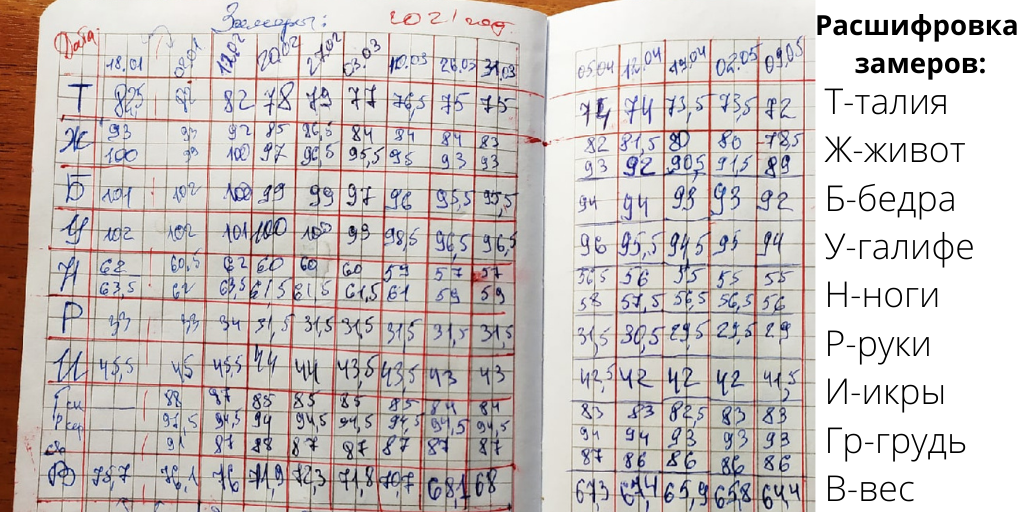 Замеры: 2021 год.
Дата: 18.01 02.01 12.02 20.02 27.02 03.03 10.03 26.03 31.03
Т 82,5 82 78 79 77 76,5 75 75
Ж 93 93 92 85 86,5 84 84 84 83
100 99 100 97 96,5 95,5 95 93 93
Б 101 102 100 99 99 97 96 95,5 95,5
У 102 102 101 100 100 99 98,5 96,5 96,5
Н 62 60,5 62 60 60 60 59 57 57
63,5 62 63,5 61,5 61,5 61,5 61 59 59
Р 33 33 34 31,5 31,5 31,5 31,5 31,5 31,5
И 45,5 45 45,5 44 44 43,5 43,5 43 43
Г 88 87 85 85 85 85 84 84
Р 97,5 94,5 94 94,5 94,5 94,5 94,5 94,5
91 87 88 87 87 87 87 87
В 75,7 76,1 76 71,9 72,3 71,8 70,7 68,1 68
05.04 12.04 19.04 02.05 09.05
74 74 73,5 73,5 72
82 81,5 80 80 78,5
93 92 90,5 91,5 89
94 94 93 93 92
96 95,5 94,5 95 94
56,5 56 55 55 55
58 57,5 56,5 56,5 56
31,5 30,5 29,5 29,5 29
42,5 42 42 42 41,5
83 83 82,5 83 83
94 94 93 93 93
87 86 86 86 86
67,3 67,4 65,9 65,8 64,4
Расшифровка
замеров:
Т-талия
Ж-живот
Б-бедра
У-галифе
Н-ноги
Р-руки
И-икры
Гр-грудь
В-вес